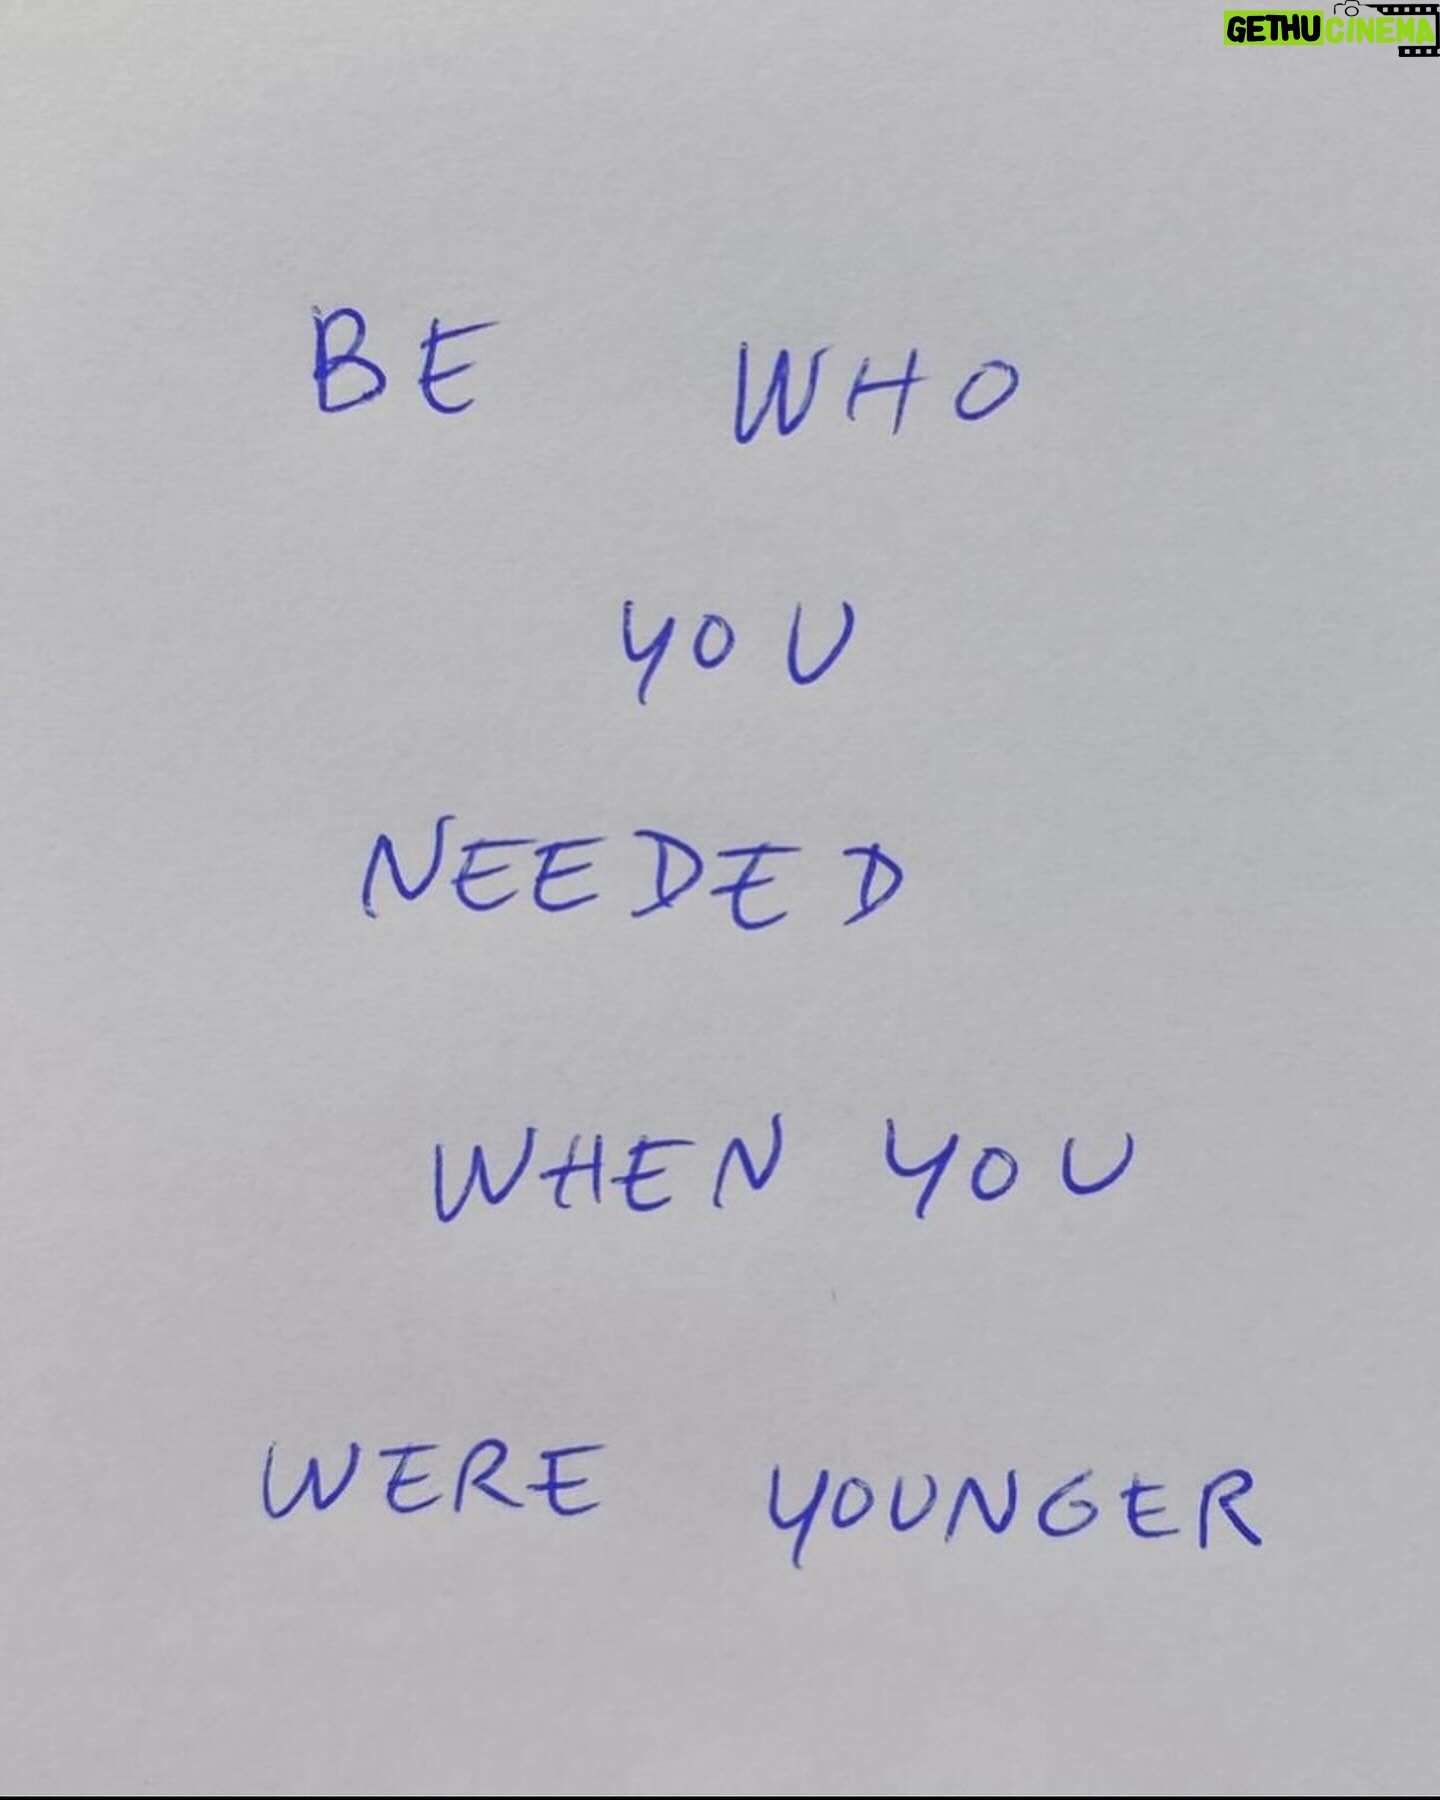 GETHUCINEMA
BE WHO
YOU
NEEDED
WHEN YOU
WERE YOUNGER